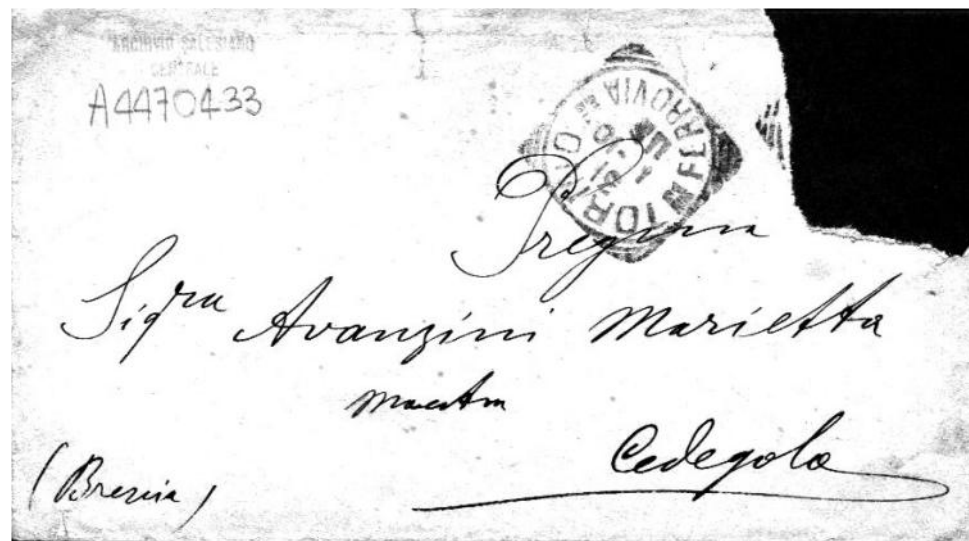 ARCHIVIO SALESIANO
CENTRALE
A4470433
TORINO FERROVIA
Pregma
Sigra Avanzini Marietta
maestra
Cedegolo
(Brescia)